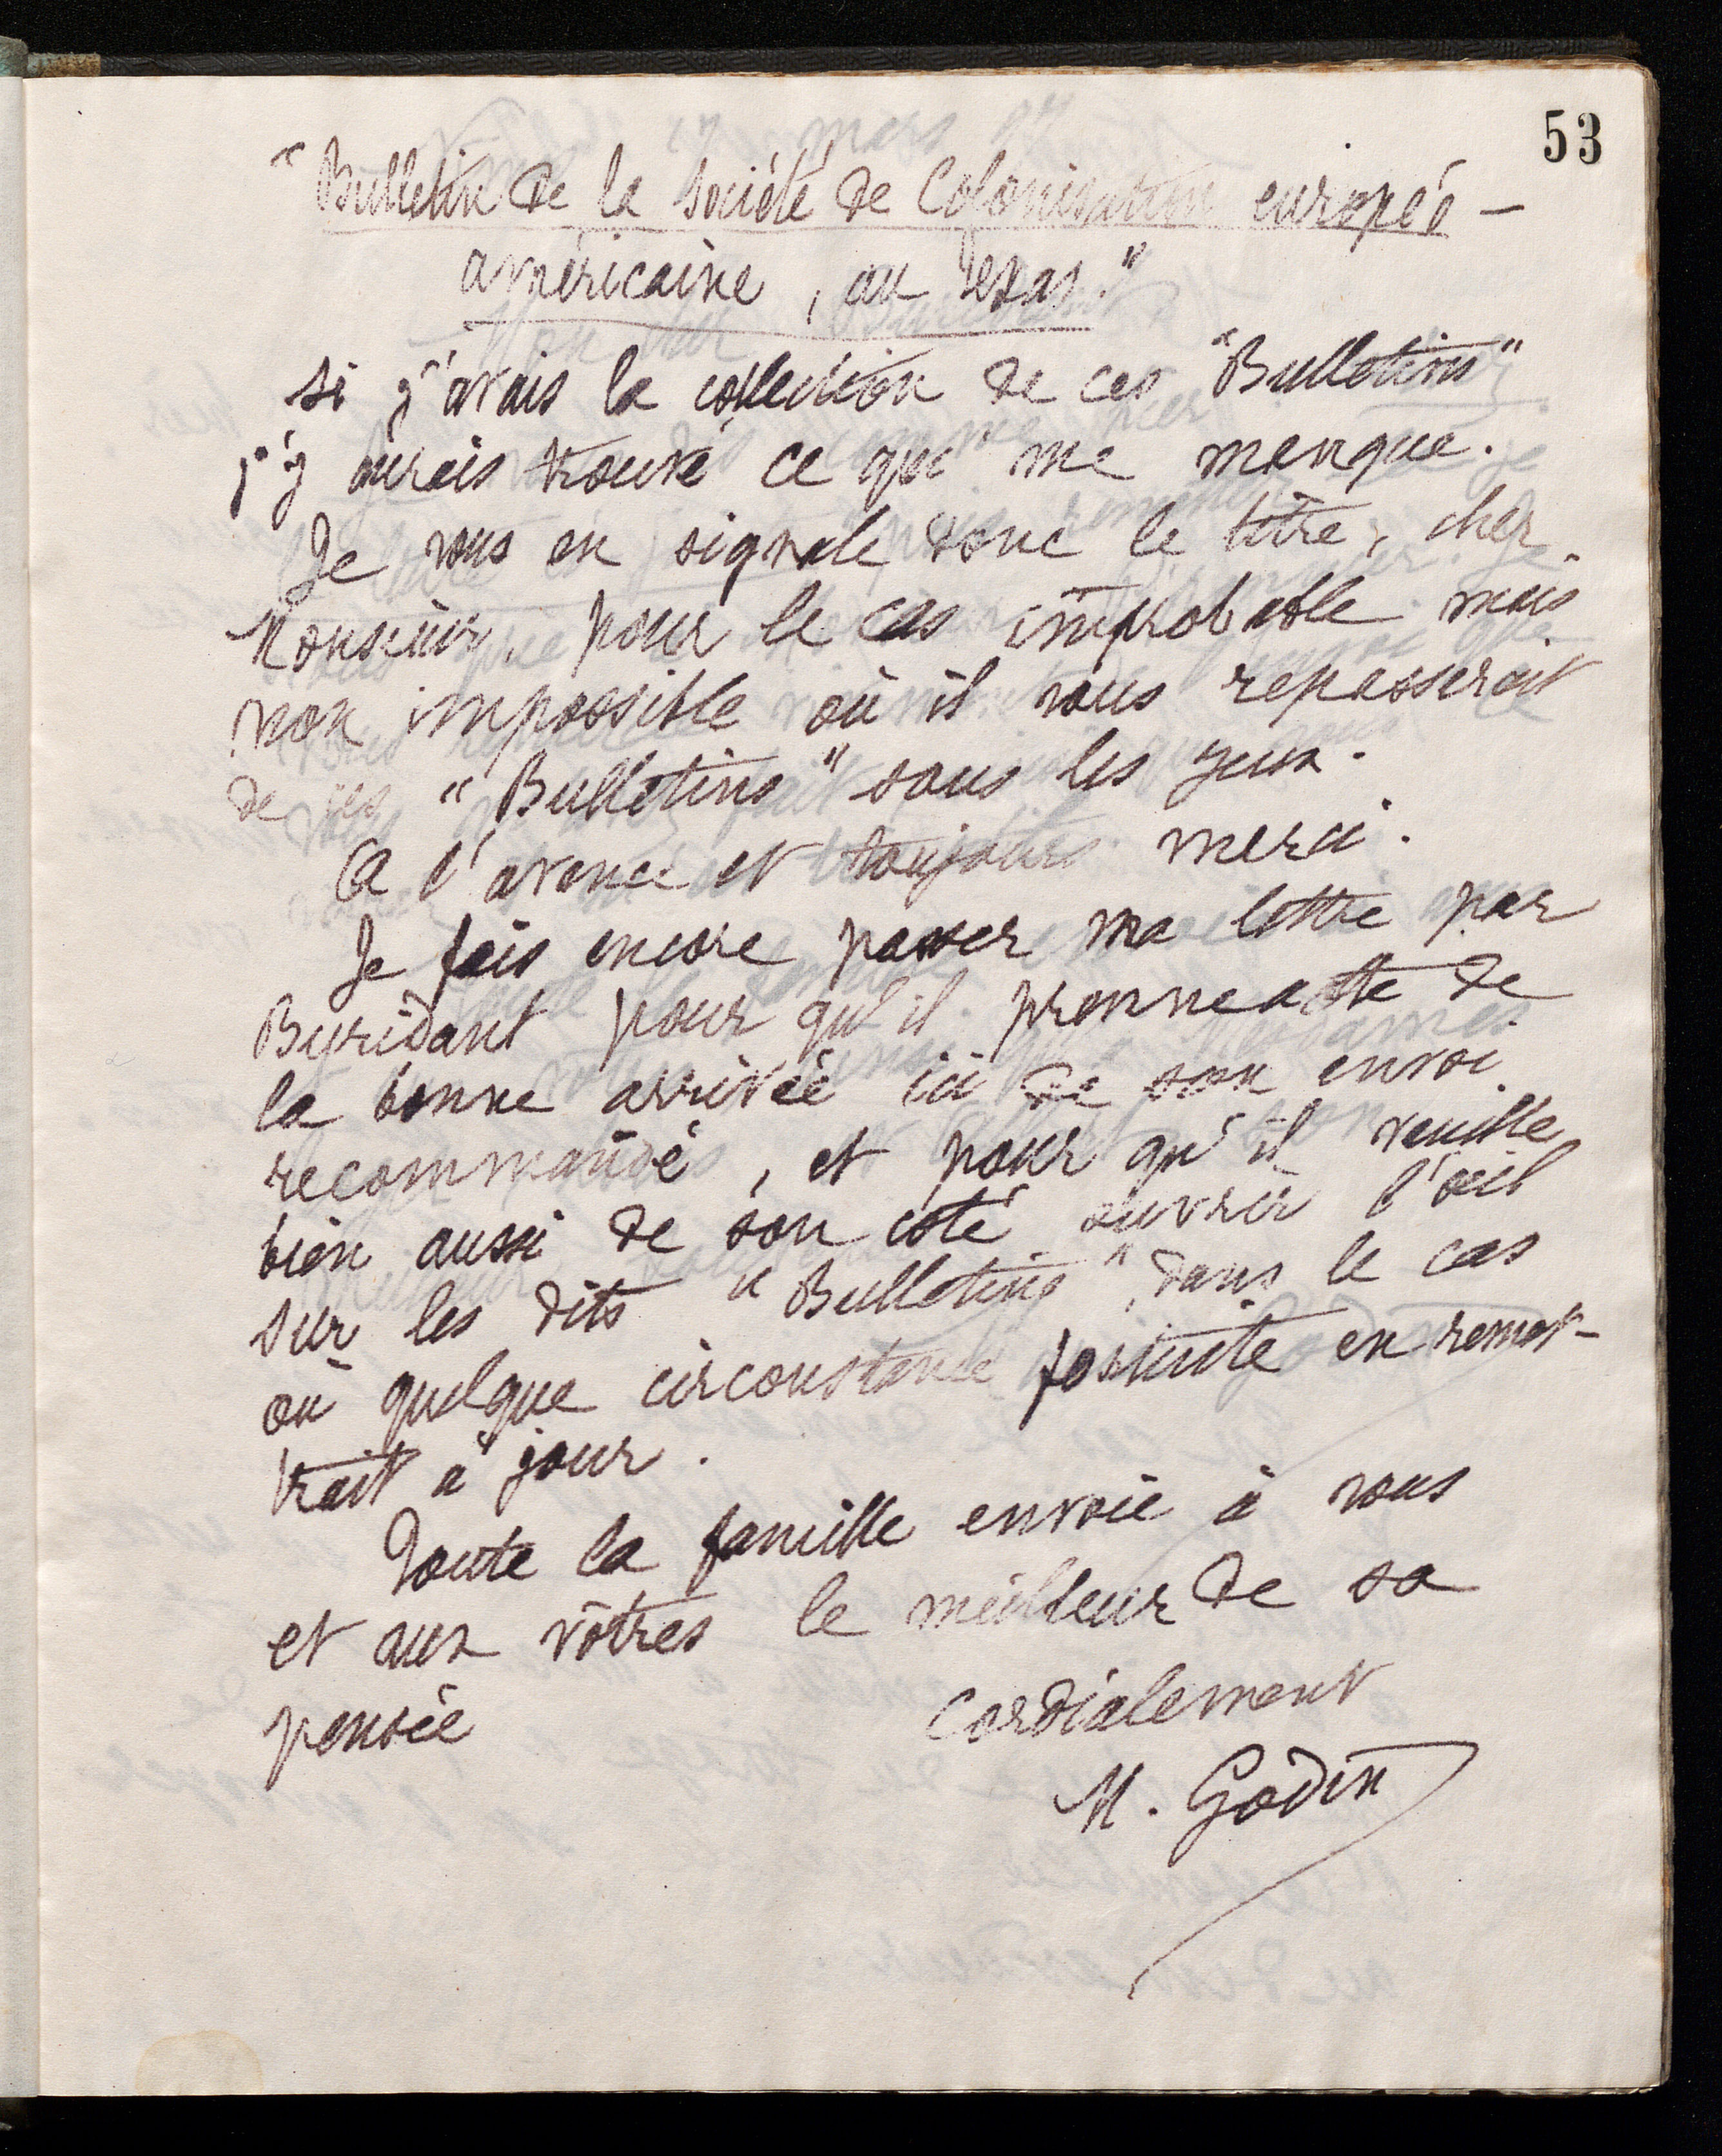 53
"Bulletin de la Société de Colonisation européo-
américaine, au Texas."
Si j'avais la collection de ces "Bulletins"
j'y aurais trouvé ce qui me manque.
Je vous en signale donc le titre, cher
Monsieur, pour le cas improbable mais
non impossible où il vous repasserait
de ces "Bulletins" sous les yeux.
A l'avance et toujours merci.
Je fais encore passer ma lettre par
Buridant pour qu'il prenne acte de
la bonne arrivée ici de son envoi
recommandé, et pour qu'il veuille
bien aussi de son côté ouvrir l'œil
sur les dits "Bulletins", dans le cas
où quelque circonstance fortuite en remet-
trait à jour.
Toute la famille envoie à vous
et aux vôtres le meilleur de sa
pensée
Cordialement
M. Godin